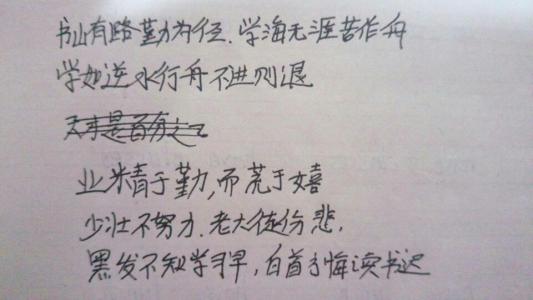 书山有路勤为径.学海无涯苦作舟
学如逆水行舟不进则退
天才是百分之
业精于勤,而荒于嬉
少壮不努力.老大徒伤悲.
黑发不知学习早,白首方悔读书迟